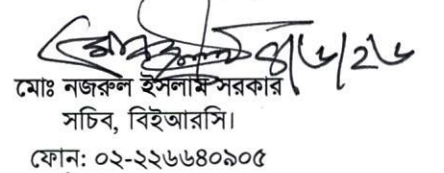 ৪/৬/২৬
মোঃ নজরুল ইসলাম সরকার
সচিব, বিইআরসি।
ফোন: ০২-২২৬৬৪০৯০৫